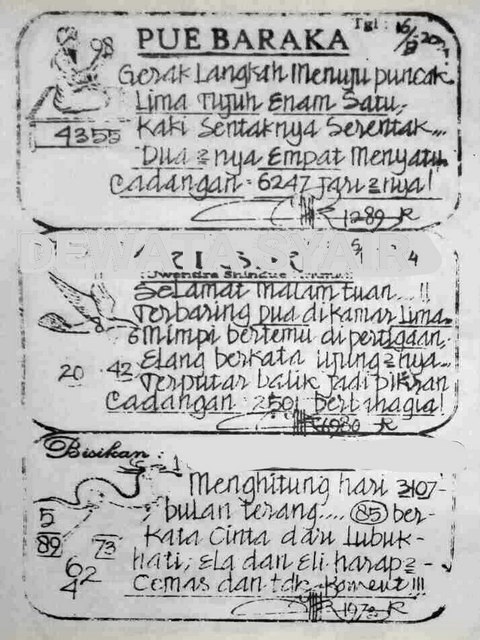 Tgl: 16/8-20
98
PUE BARAKA
Gerak Langkah Menuju puncak
Lima Tujuh Enam Satu,
4355
Kaki Sentaknya Serentak...
Dua 2nya Empat Menyatu
Cadangan: 6247 jari2nya!
1289
DEWATA SYAIR
4
Selamat malam tuan....!!
Terbaring Dua di kamar Lima
6 Mimpi bertemu di pertigaan,
20 42
Elang berkata ujung2nya..
Terputar balik jadi pikiran
Cadangan 2501 berbahagia!
6980
Bisikan :
Menghitung hari 2107
5
bulan terang.... 85 ber-
89 73
Kata Cinta dari lubuk
62
hati, Ela dan Eli harap2
4
Cemas dan tdk koment !!!
197